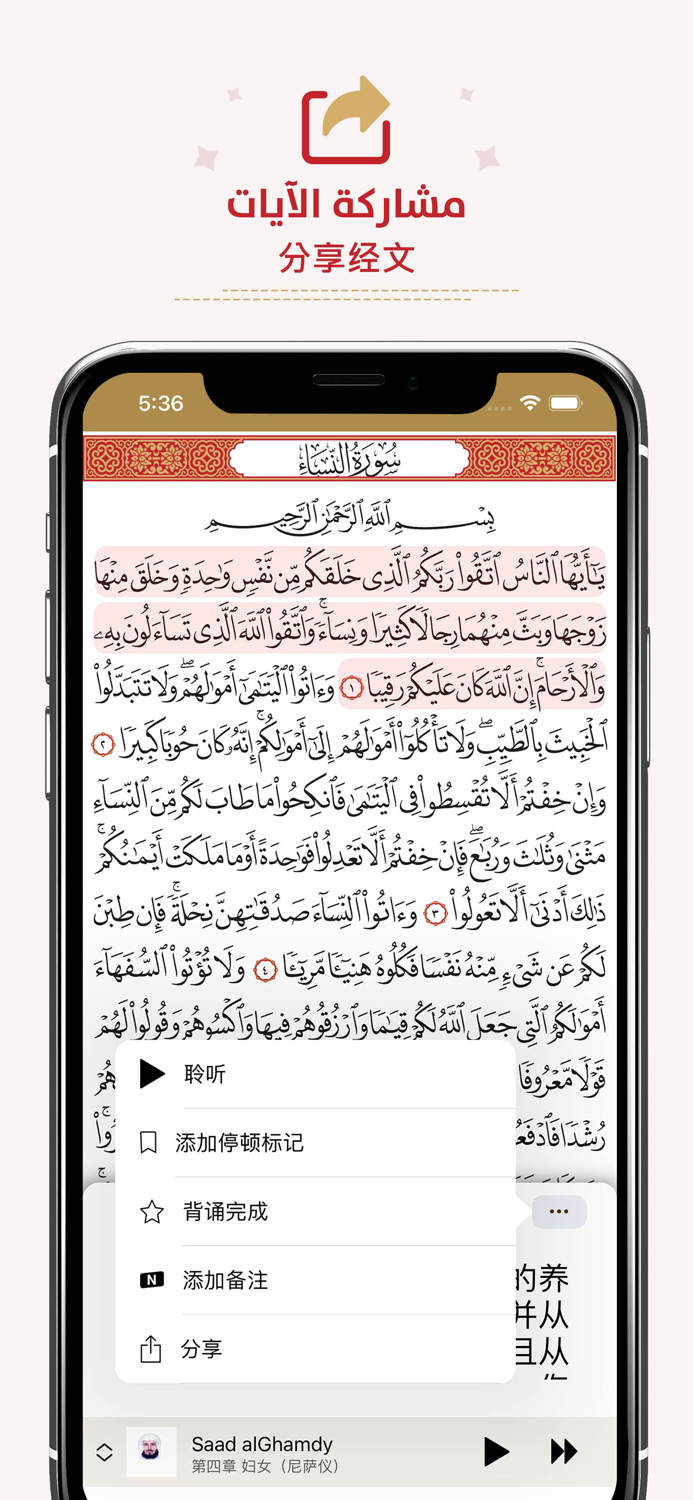 مشاركة الآيات
分享经文
5:36
سُورَةُ النِّسَاءِ
بِسْمِ ٱللَّهِ ٱلرَّحْمَٰنِ ٱلرَّحِيمِ
يَٰٓأَيُّهَا ٱلنَّاسُ ٱتَّقُوا۟ رَبَّكُمُ ٱلَّذِى خَلَقَكُم مِّن نَّفْسٍ وَٰحِدَةٍ وَخَلَقَ مِنْهَا
زَوْجَهَا وَبَثَّ مِنْهُمَا رِجَالًا كَثِيرًا وَنِسَآءً ۚ وَٱتَّقُوا۟ ٱللَّهَ ٱلَّذِى تَسَآءَلُونَ بِهِۦ
وَٱلْأَرْحَامَ ۚ إِنَّ ٱللَّهَ كَانَ عَلَيْكُمْ رَقِيبًا ١ وَءَاتُوا۟ ٱلْيَتَٰمَىٰٓ أَمْوَٰلَهُمْ ۖ وَلَا تَتَبَدَّلُوا۟
ٱلْخَبِيثَ بِٱلطَّيِّبِ ۖ وَلَا تَأْكُلُوٓا۟ أَمْوَٰلَهُمْ إِلَىٰٓ أَمْوَٰلِكُمْ ۚ إِنَّهُۥ كَانَ حُوبًا كَبِيرًا ٢
وَإِنْ خِفْتُمْ أَلَّا تُقْسِطُوا۟ فِى ٱلْيَتَٰمَىٰ فَٱنكِحُوا۟ مَا طَابَ لَكُم مِّنَ ٱلنِّسَآءِ
مَثْنَىٰ وَثُلَٰثَ وَرُبَٰعَ ۖ فَإِنْ خِفْتُمْ أَلَّا تَعْدِلُوا۟ فَوَٰحِدَةً أَوْ مَا مَلَكَتْ أَيْمَٰنُكُمْ ۚ
ذَٰلِكَ أَدْنَىٰٓ أَلَّا تَعُولُوا۟ ٣ وَءَاتُوا۟ ٱلنِّسَآءَ صَدُقَٰتِهِنَّ نِحْلَةً ۚ فَإِن طِبْنَ
لَكُمْ عَن شَىْءٍ مِّنْهُ نَفْسًا فَكُلُوهُ هَنِيٓـًٔا مَّرِيٓـًٔا ٤ وَلَا تُؤْتُوا۟ ٱلسُّفَهَآءَ
أَمْوَٰلَكُمُ ٱلَّتِى جَعَلَ ٱللَّهُ لَكُمْ قِيَٰمًا وَٱرْزُقُوهُمْ فِيهَا وَٱكْسُوهُمْ وَقُولُوا۟ لَهُمْ
قَوْلًا مَّعْرُوفًا
رُشْدًا فَٱدْفَعُ
聆听
添加停顿标记
背诵完成
添加备注
分享
的养
并从
且从
Saad alGhamdy
第四章 妇女（尼萨仪）